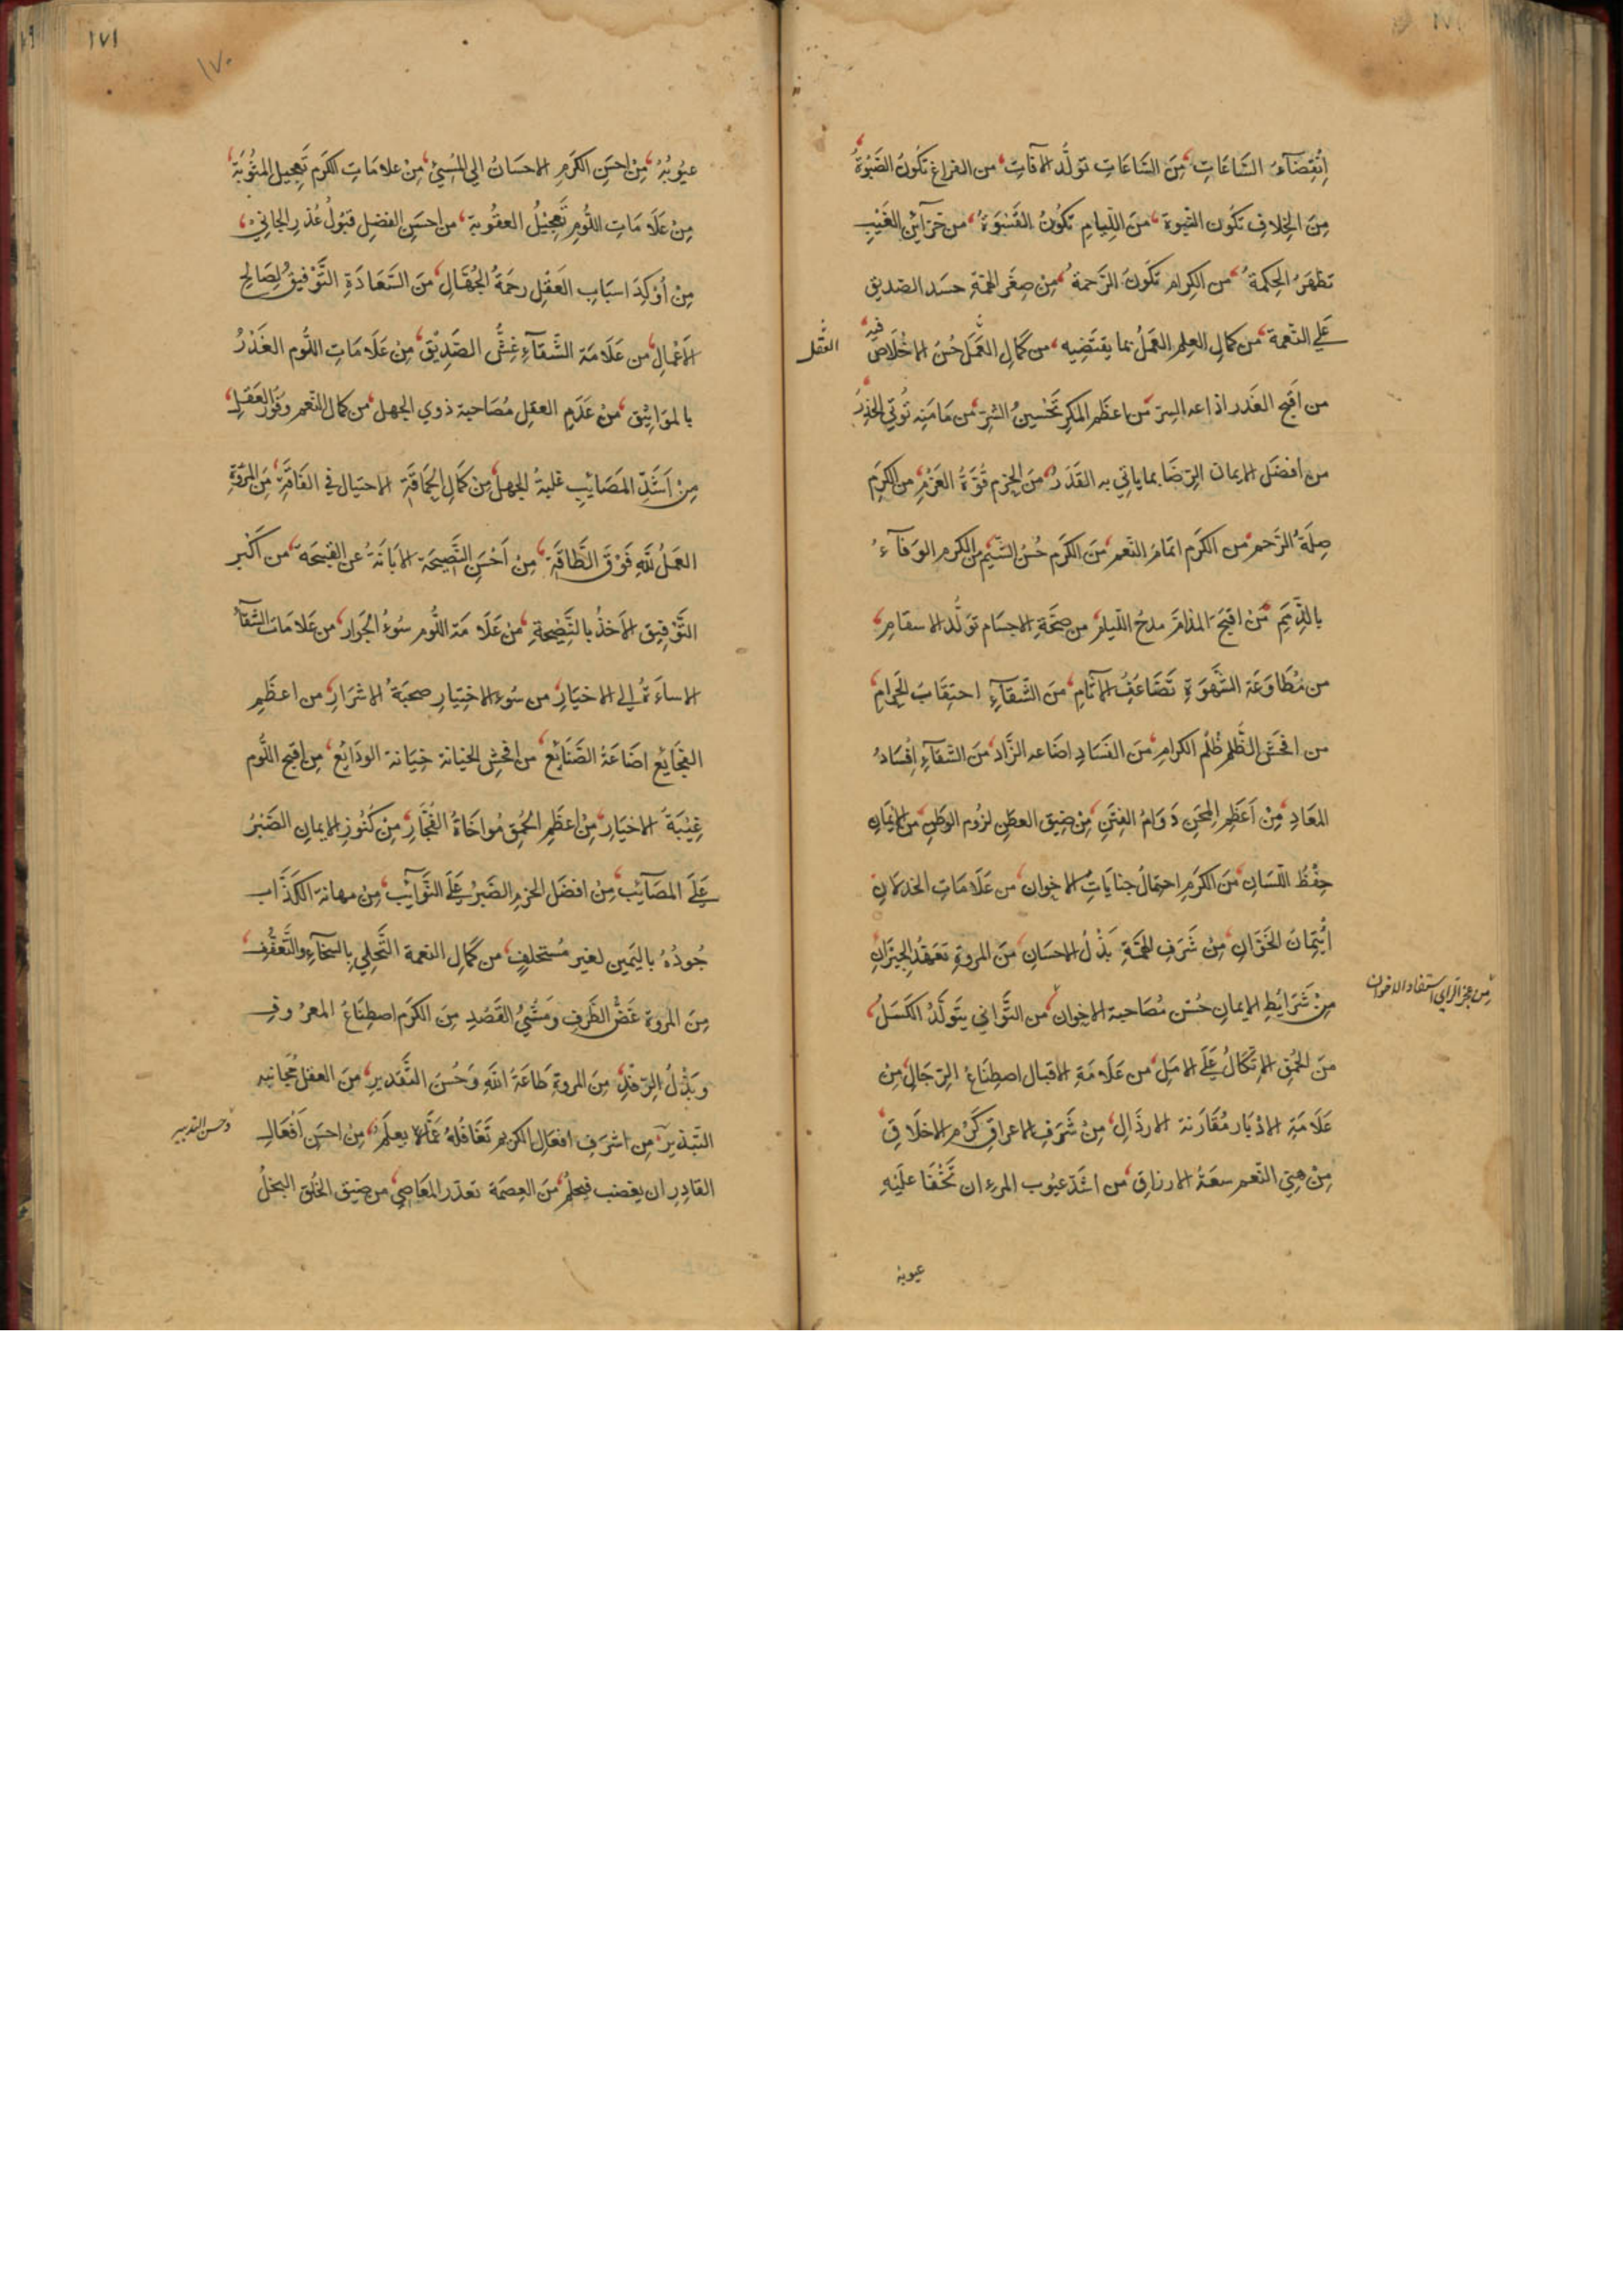 اِنْقِضَآءُ السَّاعَاتِ، مِنَ السَّاعَاتِ تَوَلُّدُ الآفَاتِ، من الفراغ تَكُونُ الصَّبْوَةُ،
مِنَ الخِلافِ تَكُون النّبوة، مَن اللِّيامِ تكُونُ القَسْوَةُ، من خَزآئِن الغَيْبِ
تظهَرُ الحِكمَةُ، من الكِرام تَكُونُ الرَّحمةُ، مِنْ صِغَرِ الهِمّةِ حسَد الصَديق
عَلي النّعمة، مَن كمالِ العِلمِ العَمَلُ بما يقتَضِيه، من كَمَالِ العَمَل حُسنُ الاخْلَاص فيهِ،
العقل
من اَقبحِ الغَدر اذاعه السِرّ، مَن اعظَم المكرِ تَحْسِينُ الشرّ، من مَامَنِه يُوتي الحَذِرُ،
من افضَل الايمان الرِضَا بما ياتي به القَدَرُ، مِنَ الحَزم قُوّةُ العَزْمِ، من الكَرَم
صِلَةُ الرَّحم، من الكَرَم اتمامُ النّعم، مَنَ الكَرم حُسْنُ الشّيم، من الكرم الوَفآءُ
بالذِّمَم، مَن اقبَحِ المذامِّ مدحُ اللّيام، من صحّةِ الاجسَام توَلُّد الاسقام،
من مُطَاوَعَة الشَّهوَةِ تَضَاعُفُ الآثَامِ، مِنَ الشّقآءِ احتِقَابُ الحَرامِ،
من افحَش الظُلم ظُلم الكرام، مِنَ الفَسَادِ اضاعه الزَّاد، مَنَ الشّقآءِ اِفْسَادُ
المَعَادِ، مِنْ اَعْظَمِ المِحَنِ دَوَامُ الفِتَنِ، مِنْ ضِيق العطَنِ لزُوم الوطَنِ، من الايمَانِ
حِفْظُ اللّسَانِ، مَنَ الكَرَمِ احتمالُ جناياتِ الاخوان، من عَلَامَاتِ الخذلان
ائتِمَانُ الخَوَّانِ، مِنْ شَرَفِ الهِمَّةِ بَذْلُ الاحسَانِ، مَنَ المروةِ تَعَهُّدُ الجِيرَانِ
مِنْ شَرَايُطِ الايمانِ حُسْن مُصَاحبة الاخوان، من التَّوَاني يتَوَلَّدُ الكَسَلُ،
من عجز الراي استفساد الاخوان
مَنَ الحُمْقِ الاِتّكَالُ عَلَي الامَلِ، من عَلَامَةِ الاقبال اصطِنَاعُ الرِجَالِ، مِنْ
عَلَامَةِ الادْبَار مُقَارَنَة الارذَالِ، مِنْ شَرَفِ الاعراقِ كَرَم الاخلَاقِ،
مِنْ هَنِيّ النّعم سعَةُ الارزاقِ، من اشَدّ عيُوب المرءِ ان تَخْفَا عليَهِ
عيوبه
١٧١
١٧٠
عيُوبُهُ، مِنْ احسَنِ الكَرَمِ الاحسَانُ الي المُسِيْ، مِنْ علامَاتِ الكَرَمِ تَعجِيل المثُوبَة،
مِنْ عَلَامَاتِ اللّومِ تَعجِيْلُ العقُوبة، من احسَنِ الفضلِ قبُولُ عُذرِ الجاني،
مِنْ اُوْكِدِ اسبَابِ العَقْلِ رحمَةُ الجُهّالِ، مَنَ السّعَادَةِ التَّوْفيقُ لِصَالِحِ
الاَعْمَالِ، من عَلَامَة الشَّقآءِ غِشُّ الصّدِيْقِ، مِنْ عَلَامَاتِ اللّوم الغَدْرُ
بالمَوَاثِيْقِ، مَنْ عَدَمِ العقلِ مُصَاحبَة ذوي الجهل، من كمال النعم وفُور العَقل،
مِنْ اَشَدِّ المَصَائِبِ غلبةُ الجَهل، مِنْ كمَالِ الحَمَاقَةِ الاحتيال في الفَاقَةِ، مَن المروّةِ
العَملُ للّهِ فَوْقَ الطَّاقَةِ، مِنْ اَحْسَنِ النَّصِيحَة الاِبَانَةُ عن القبيحَة، من اَكْبر
التَّوْفيق الاَخذُ بالنَّصِيحَةِ، مَنْ عَلَامَة اللّوم سُوءُ الجَوَار، من عَلامَات الشّقآء
الاساءَةُ الي الاخيَارِ، من سُوءِ الاختِيارِ صحبَةُ الاشرَارِ، من اعظَمِ
الفجَايع اضَاعَةُ الصَّنَايِع، من افحَشِ الخيانة خِيَانة الودَايع، مِن اقبح اللّوم
غِيْبَةُ الاخيَارِ، مِنْ اعظَمِ الحُمق مُواخَاةُ الفُجَّارِ، مِنْ كُنُوز الايمان الصّبْرُ
عَلَي المصَآئِب، مِنْ افضَل الحزمِ الصَبرُ عَلَي النَّوَآئب، مِنْ مهانة الكَذَّاب
جُودُهُ باليَمين لغيرِ مُستحلفٍ، من كمَالِ النعمة التَّحَلي بالسخآءِ والتَّعفُّفِ،
مِنَ المروة غَضُّ الطَرفِ ومَشْيُ القَصْدِ، مِنَ الكَرَم اصطِنَاعُ المعرُوف
وبَذْلُ الرِفْدِ، مِنَ المروةِ طَاعَةُ اللّهِ وَحُسنُ التَّقْديرِ، مِنَ العقلِ مُجَانبه
التّبذيرِ، من اشرَفِ افعَالِ الكريمِ تَغَافُلُهُ عَمَّا يعلَمُ، مِنْ احسَنِ اَفْعَالِ
وحسن التدبير
القادِرِ ان يغضَب فيحلُمَ، مَنَ العِصمَة تعذر المَعَاصِي، من ضيق الخُلق البخلُ